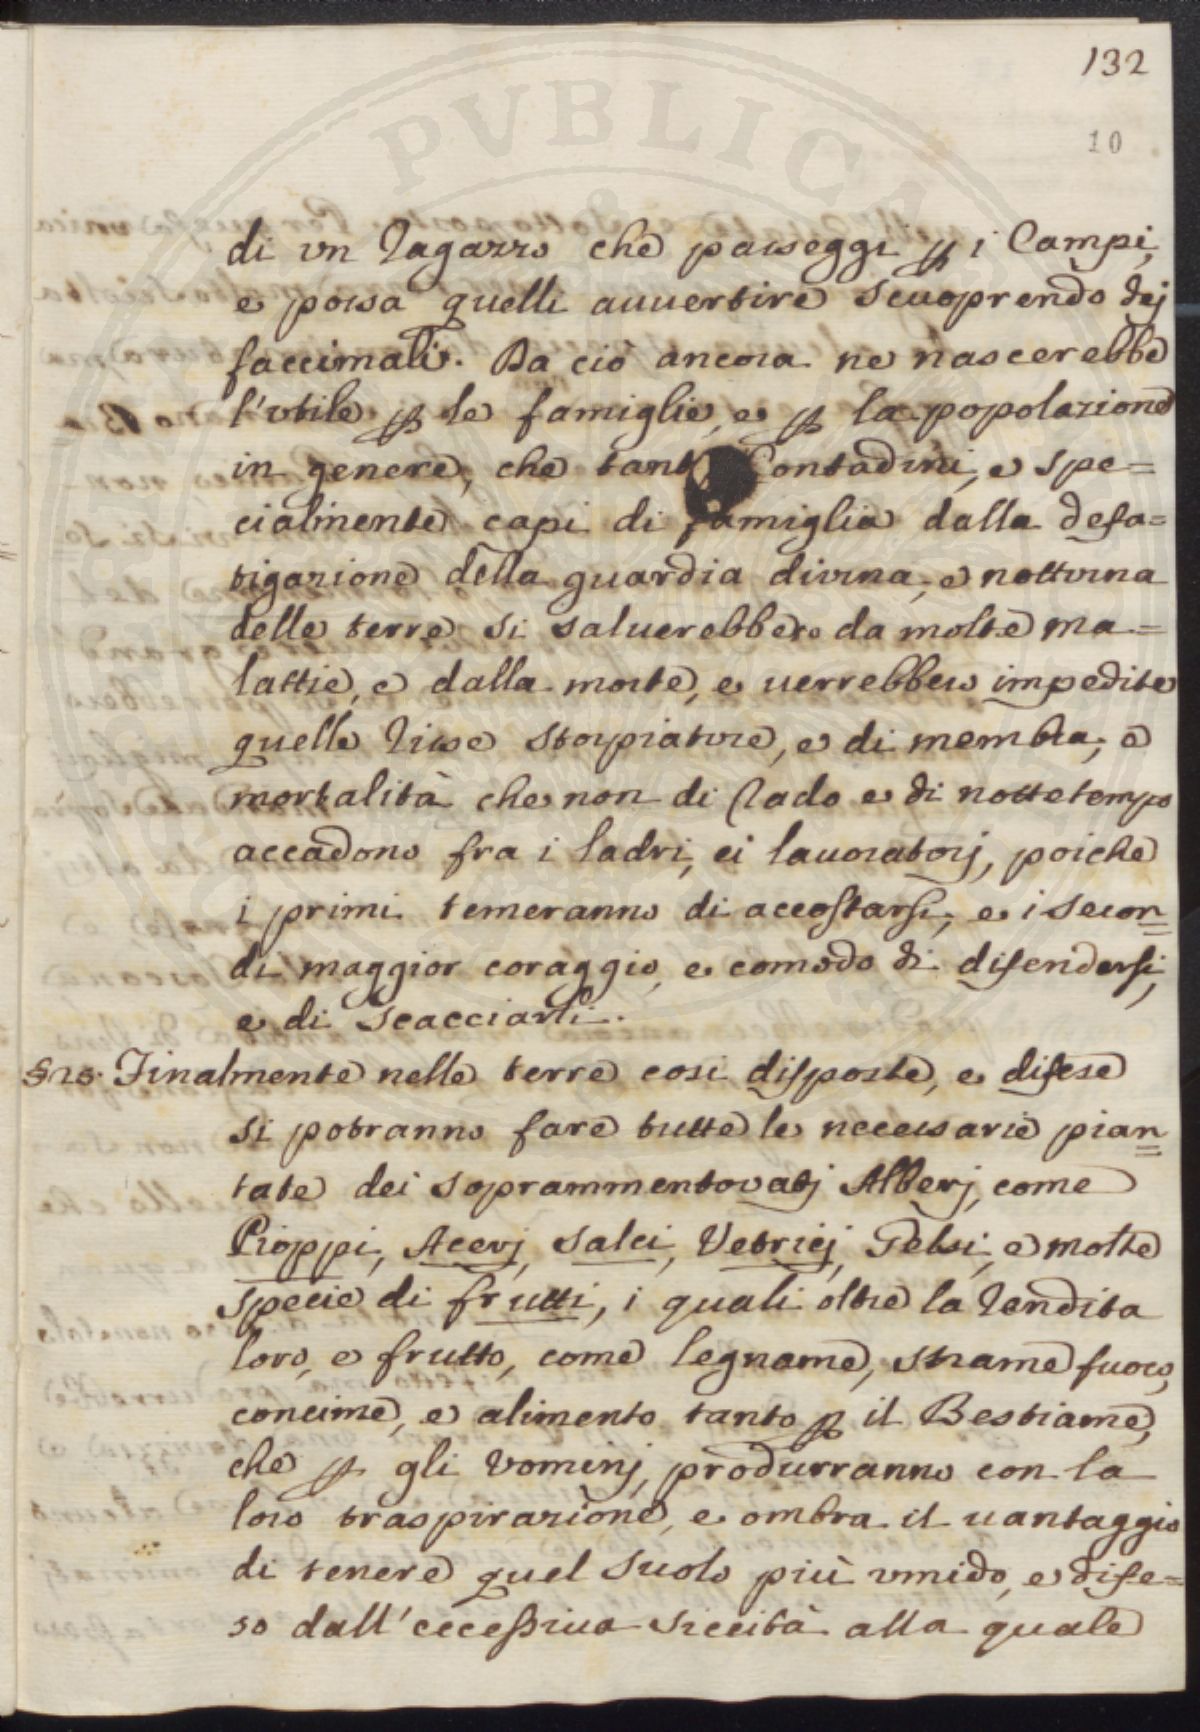 132
10
PVBLICA
di vn Ragazzo che passeggi p i Campi,
e possa quelli auuertire scuoprendo dej
faccimali. Da ciò ancora ne nascerebbe
l'vtile p le famiglie, e p la popolazione
in genere, che tant Contadini, e spe=
cialmente capi di famiglia dalla defa=
tigazione della guardia diurna, e notturna
delle terre si saluerebbero da molte ma=
lattie, e dalla morte, e uerrebbero impedite
quelle risse storpiature, e di membra, e
mortalità che non di rado e di nottetempo
accadono fra i ladri, ei lauoratorj, poiche
i primi temeranno di accostarsi, e i secon=
di maggior coraggio, e comodo di difendersi,
e di scacciarli.
Finalmente nelle terre cosi disposte, e difese
si potranno fare tutte le necessarie pian=
tate dei soprammentovatj Alberj, come
Pioppi, Acerj, Salci, Vetricj, Gelsi, e molte
specie di frutti, i quali oltre la rendita
loro, e frutto, come legname, strame fuoco,
concime, e alimento tanto p il Bestiame,
che p gli Vominj, produrranno con la
loro traspirazione, e ombra il uantaggio
di tenere quel suolo più vmido, e dife=
so dall'eccessiua siccità alla quale